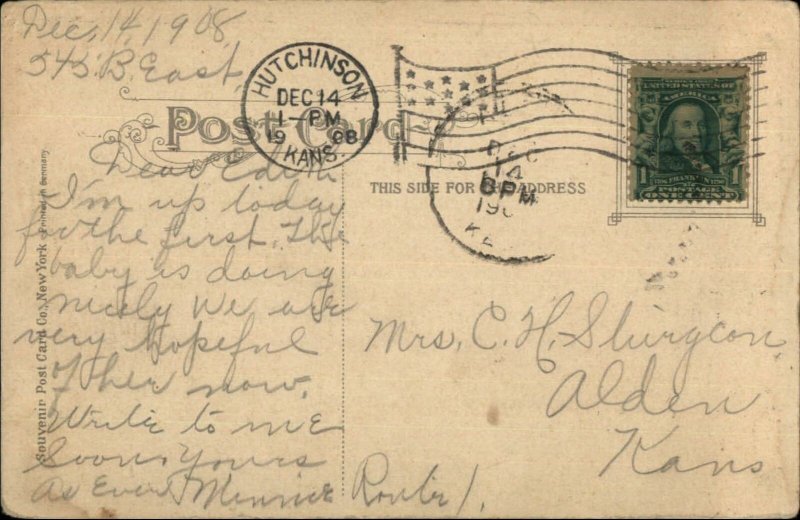 Dec, 14 1908
545 B. East,
HUTCHINSON
DEC 14
1-PM
19 08
KANS.
Post Card
THIS SIDE FOR THE ADDRESS
DEC
14
6PM
190
KA
UNITED STATES OF AMERICA
1
1
POSTAGE
ONE CENT
Dear Edith
I'm up today
for the first. The
baby is doing
nicely We are
very hopeful
of her now.
Write to me
Soon, Yours
As Ever Minnie
Souvenir Post Card Co., New York - Printed in Germany
Mrs. C. H. Sturgeon
Alden
Kans
Route 1.